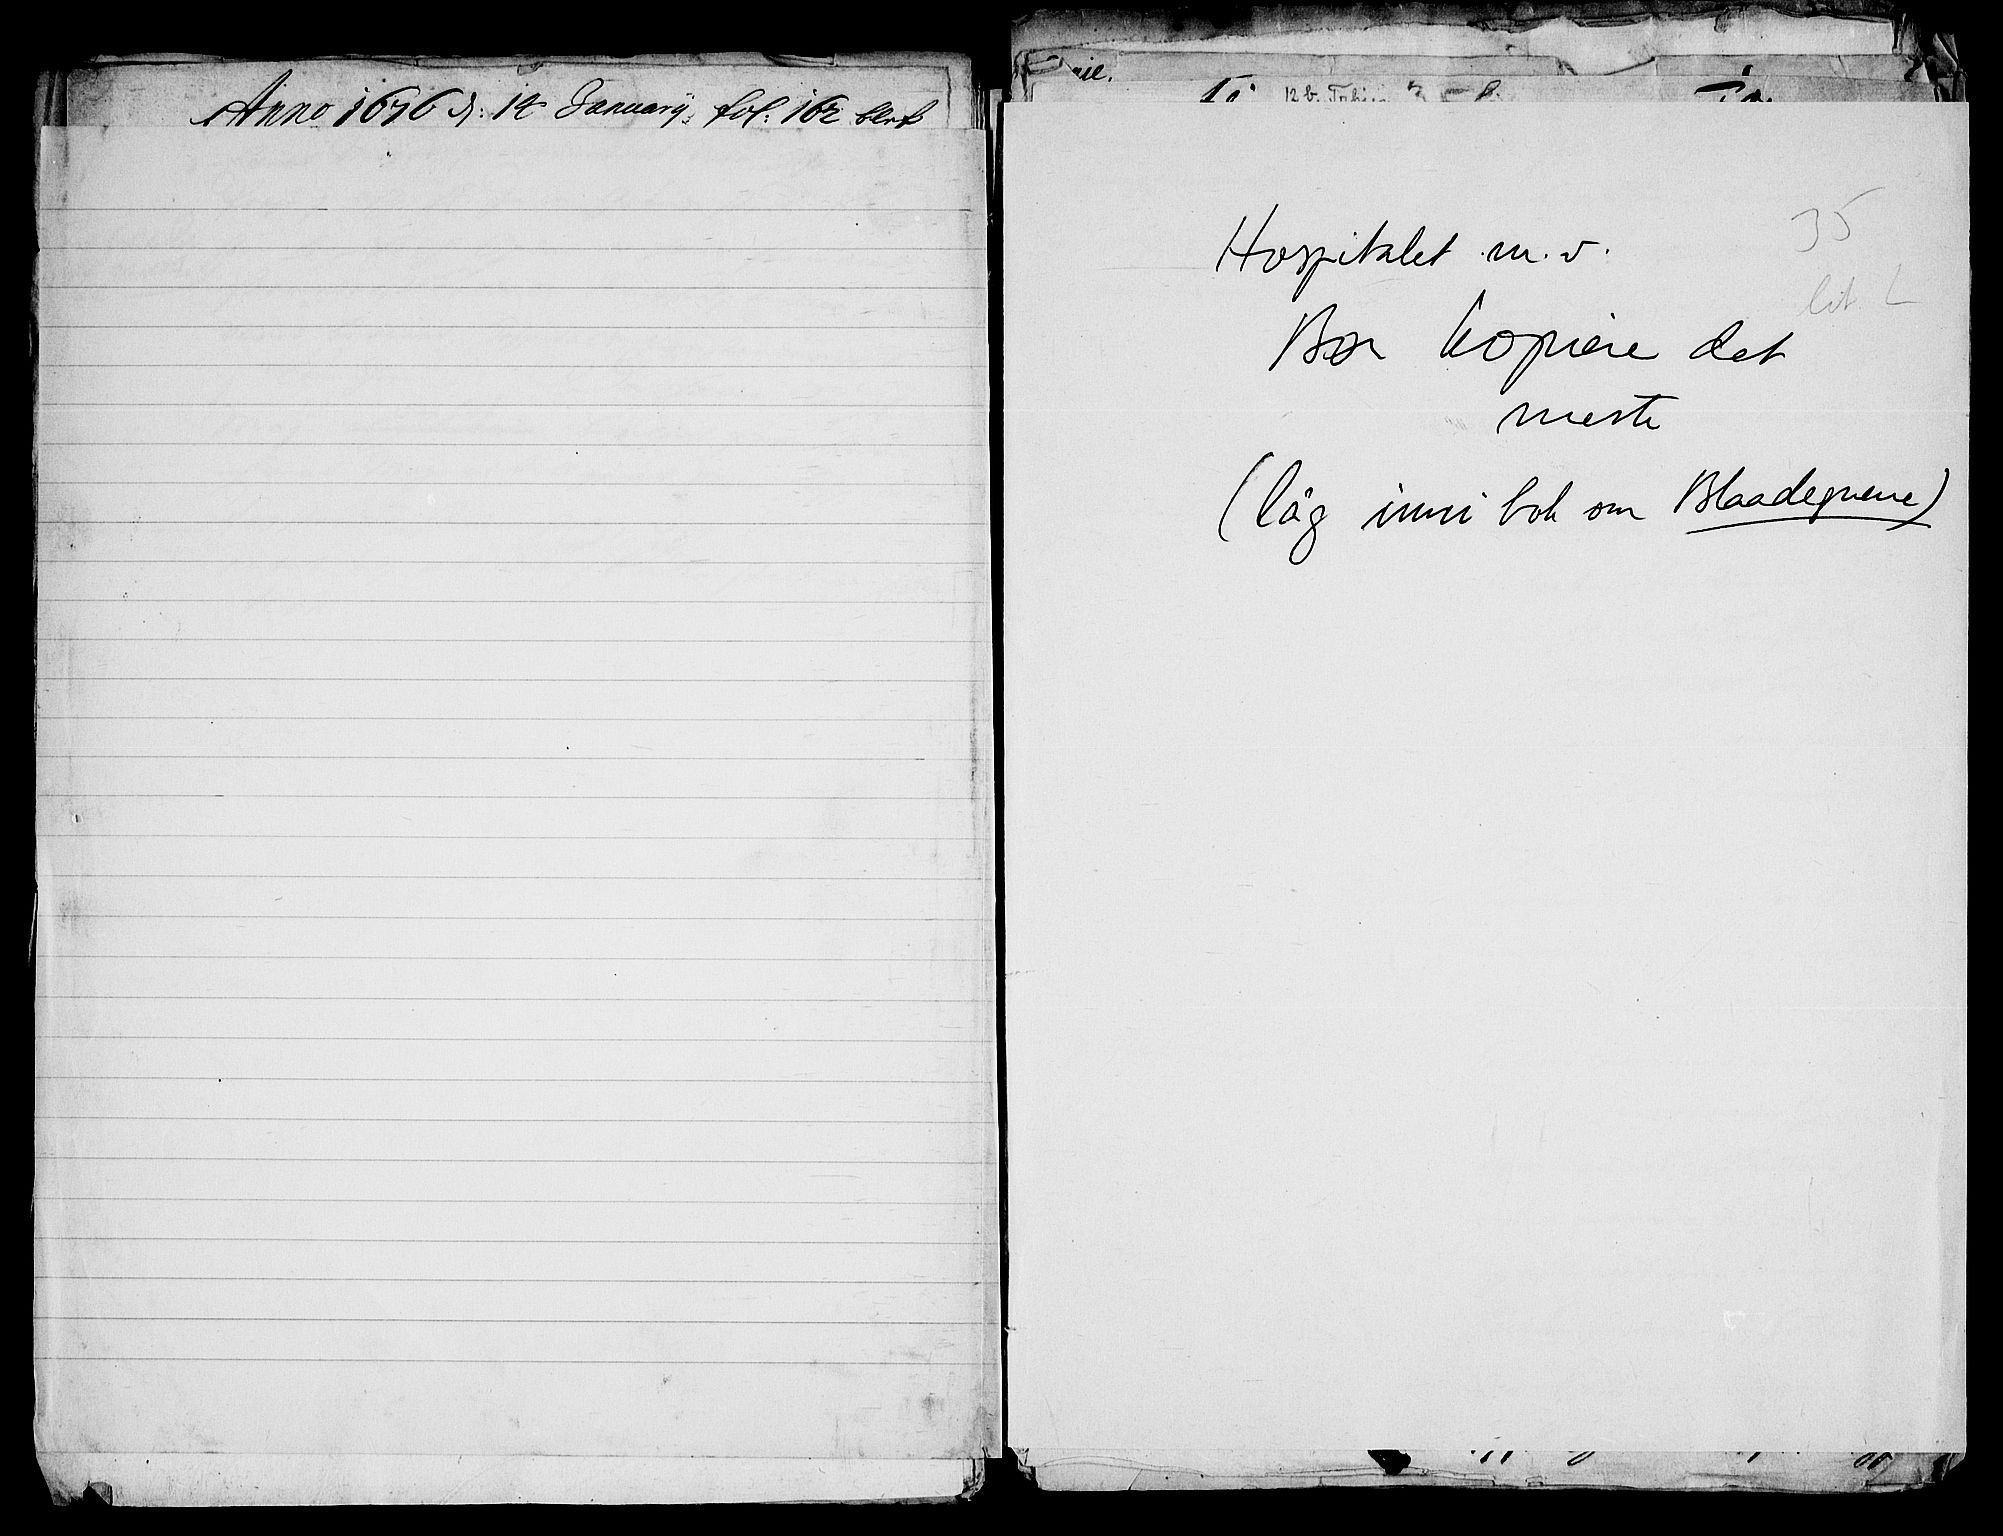 Anno 1676 d: 14 January. fol: 162
12 b.
35
Hospitalet m.v.
lit. L
Bør kopiere det
meste
(låg inni bok om Blaadegnene)